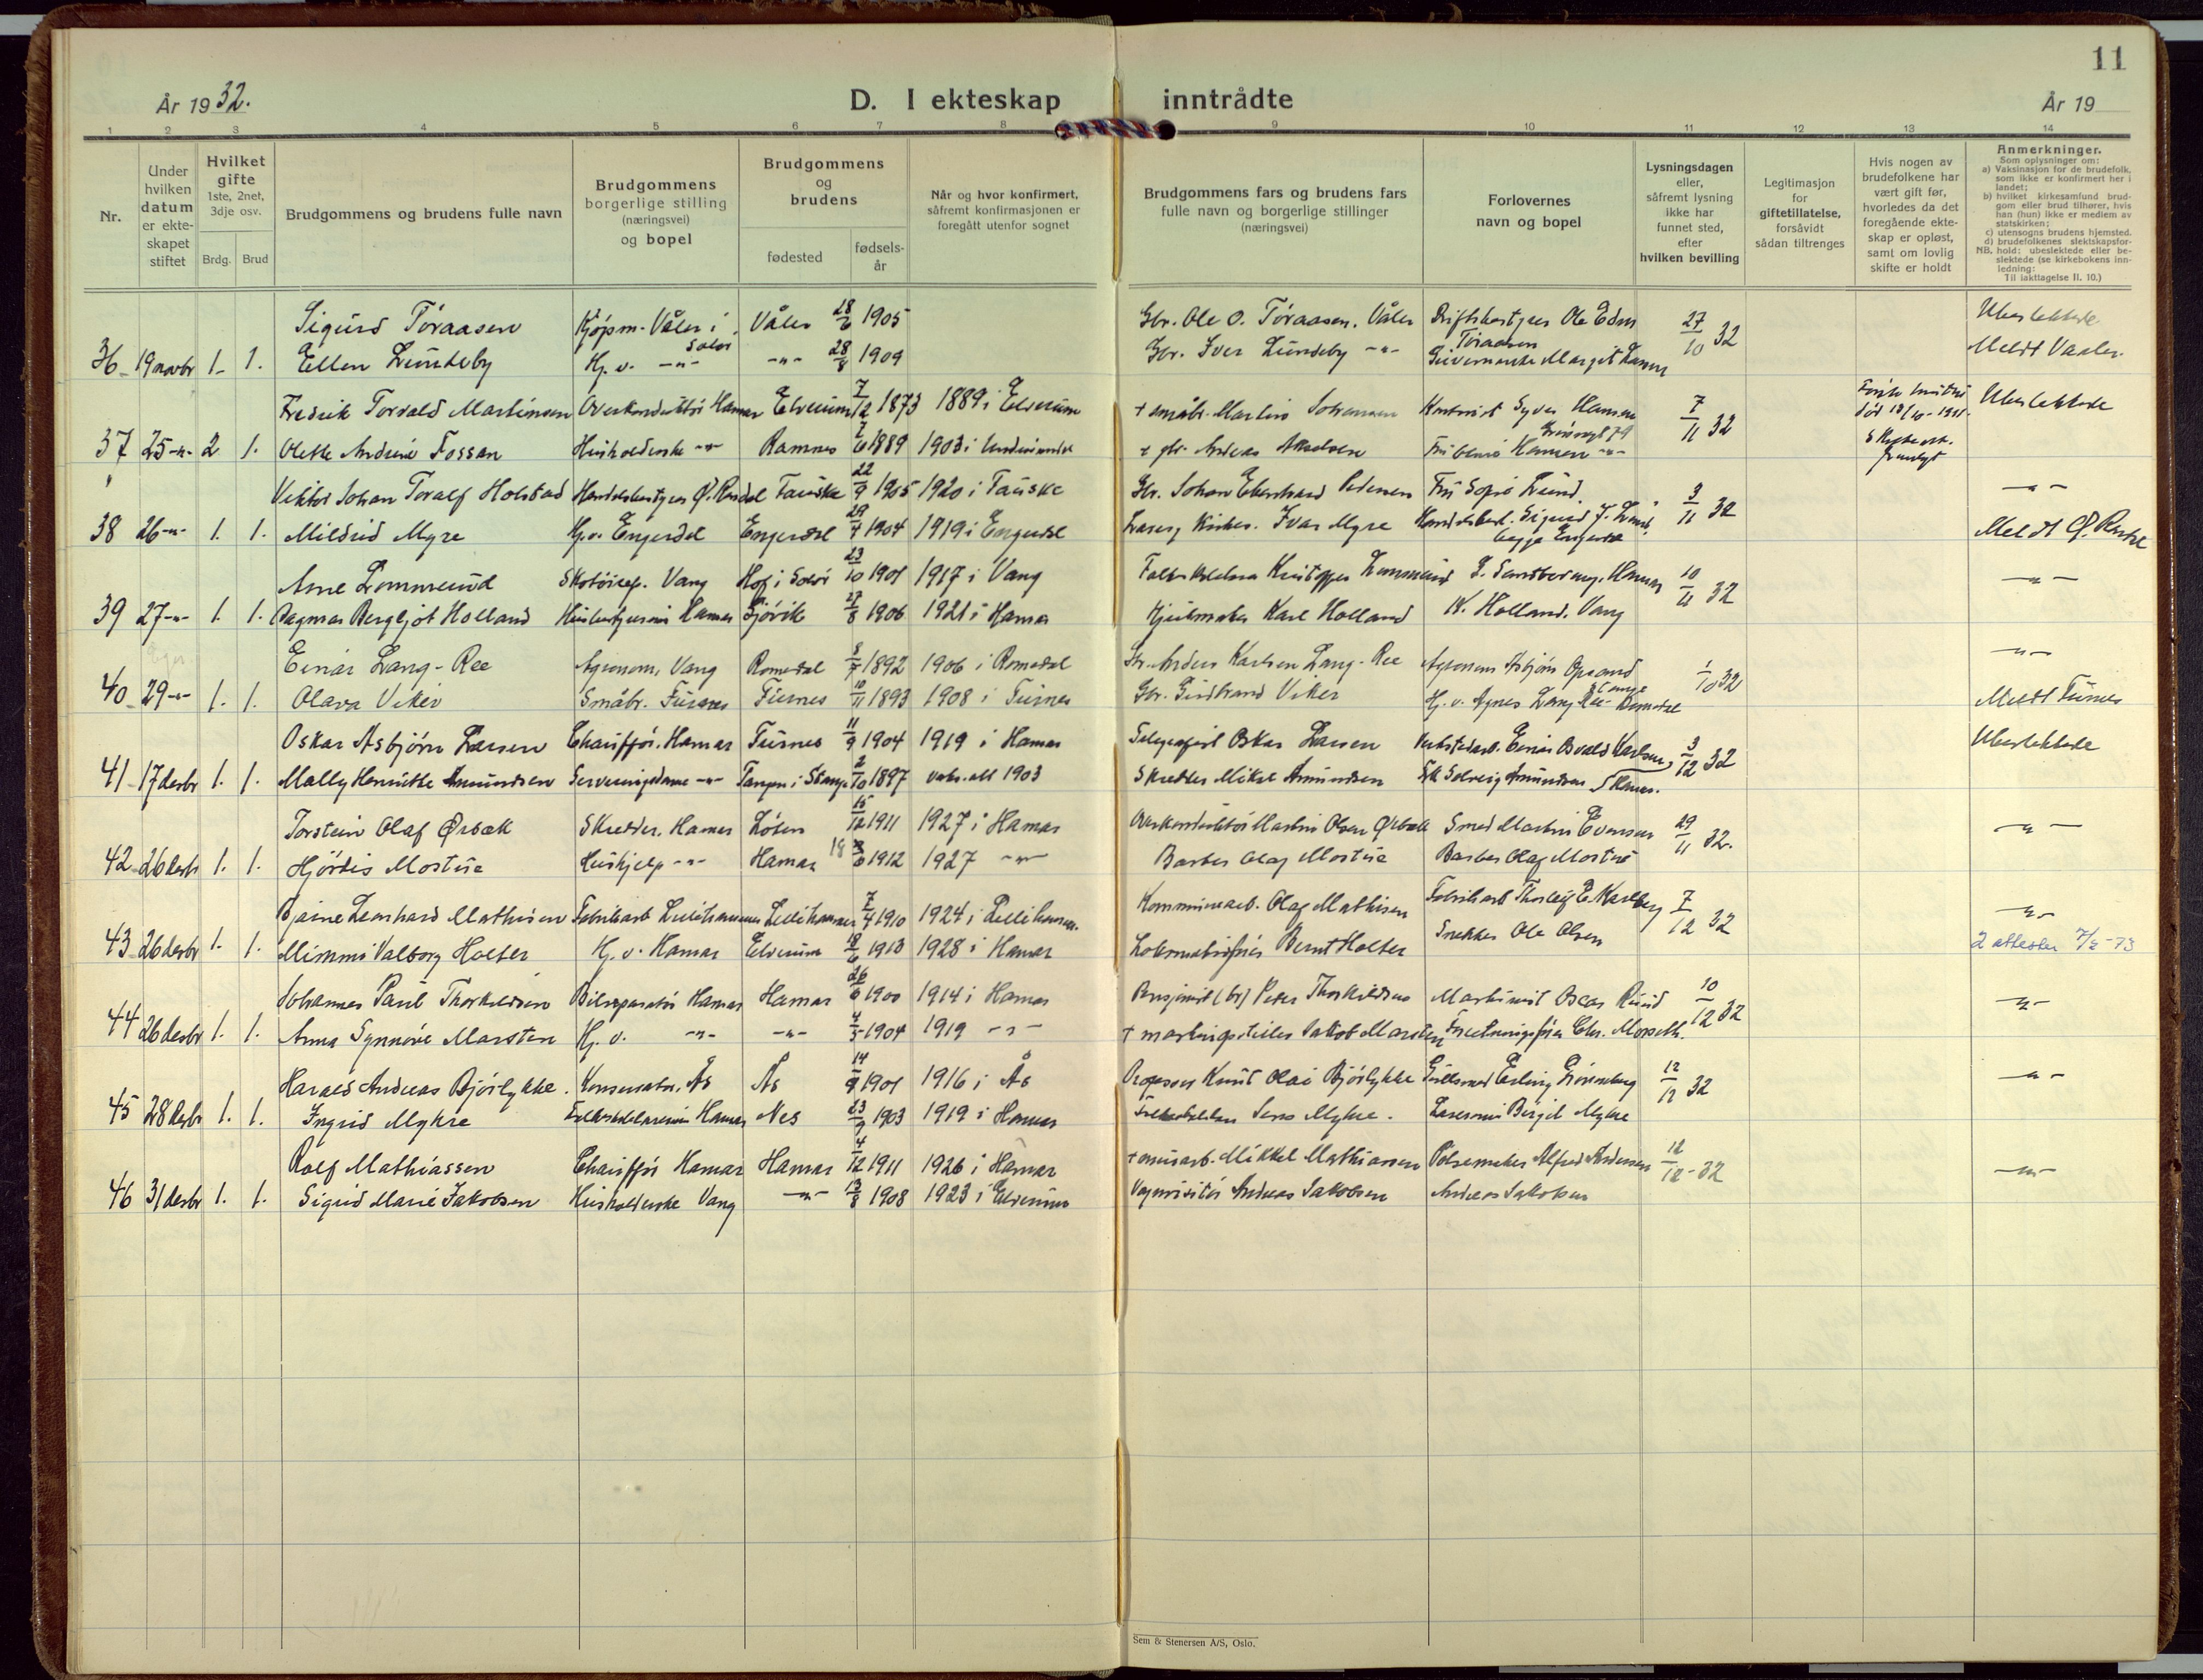 11
År 19 32.
D. I ekteskap inntrådte
År 19
1 2 3 4 5 6 7 8 9 10 11 12 13 14
Nr.
Under hvilken datum er ekte- skapet stiftet
Hvilket gifte 1ste, 2net, 3dje osv.
Brdg. Brud
Brudgommens og brudens fulle navn
Brudgommens borgerlige stilling (næringsvei) og bopel
Brudgommens og brudens
fødested
fødsels- år
Når og hvor konfirmert, såfremt konfirmasjonen er foregått utenfor sognet
Brudgommens fars og brudens fars fulle navn og borgerlige stillinger (næringsvei)
Forlovernes navn og bopel
Lysningsdagen eller, såfremt lysning ikke har funnet sted, efter hvilken bevilling
Legitimasjon for giftetillatelse, forsåvidt sådan tiltrenges
Hvis nogen av brudefolkene har vært gift før, hvorledes da det foregående ekte- skap er opløst, samt om lovlig skifte er holdt
Anmerkninger.
Som oplysninger om:
a) Vaksinasjon for de brudefolk, som ikke er konfirmert her i landet;
b) hvilket kirkesamfund brud- gom eller brud tilhører, hvis han (hun) ikke er medlem av statskirken;
c) utensogns brudens hjemsted.
d) brudefolkenes slektskapsfor- hold: ubeslektede eller be- slektede (se kirkebokens inn- ledning:
NB.
Til iakttagelse II. 10.)
Sigurd Toraasen Kjøpm. Våler i Solør Våler 28/6 1905 Gbr. Ole O. Toraasen, Våler Driftsbestyrer Ole Edm. Toraasen 27/10 32 Ubeslektede
36 19 novbr 1. 1. Ellen Lundeby Hj. v. -"- -"- 28/8 1909 Gbr. Iver Lundeby -"- Margit Meldt Vaaler.
Fredrik Torvald Martinsen Overkonduktør Hamar Elverum 7/12 1873 1889 i Elverum + småbr. Martin Johannsen Syver Hansen 7/11 32 Ubeslektede
37 25 -"- 2 1. Olette Andrine Fossan Husholderske -"- Ramnes 1889 1903 i + gbr. Andreas Hansen -"-
Viktor Johan Toralf Holstad Handelsbestyrer Ø. Rendal Fauske 22/9 1905 1920 i Fauske Gbr. Johan Eberhard Pedersen Fru Sofie Lund. 3/11 32 -"-
38 26 -"- 1. 1. Mildrid Myre Hj. v. Engerdal Engerdal 29/4 1904 1919 i Engerdal Lærer, Kirkes. Ivar Myre Sigurd J. Lund begge Engerdal Meldt Ø. Rendal
Arne Lommerud Skotøirep. Vang Hof i Solør 23/10 1901 1917 i Vang Kristoffer Lommerud Hamar 10/11 32 -"-
39 27 -"- 1. 1. Dagmar Bergljot Holland Husbestyrerinne Hamar Gjøvik 27/8 1906 1921 i Hamar Hjulmaker Karl Holland K. Holland. Vang
Einar Lang-Ree Agronom, Vang Romedal 8/7 1892 1906 i Romedal Gbr. Anders Karlsen Lang-Ree Agronom Asbjørn Opsand Stange 1/10 32 -"-
40 29 -"- 1. 1. Olava Viker Småbr. Furnes Furnes 10/11 1893 1908 i Furnes Gbr. Gudbrand Viker Hj. v. Agnes Lang-Ree Romedal Meldt Furnes
Oskar Asbjørn Larsen Chauffør. Hamar Furnes 11/9 1904 1919 i Hamar Telegrafist Oskar Larsen Verkstedarb. Einar Osvald Karlsen 3/12 32 Ubeslektede
41 17 desbr 1. 1. Mally Henriette Amundsen Serveringsdame -"- Tangen i Stange 2/10 1897 vaks. att 1903 Skredder Mikal Amundsen Frk Solveig Amundsen Hamar.
Torstein Olaf Ørbæk Skredder. Hamar Løten 15/12 1911 1927 i Hamar Overkonduktør Martin Olsen Ørbæk Smed Martin Evensen 29/11 32. -"-
42 26 desbr 1. 1. Hjørdis Mostue Hushjelp -"- Hamar 18/6 1912 1927 -"- Barber Olaf Mostue Barber Olaf Mostue
Bjarne Leonhard Mathisen Fabrikarb. Lillehammer Lillehammer 7/4 1910 1924 i Lillehammer. Kommunearb. Olaf Mathisen Fabrikarb Thorleif E. Karlberg 7/12 32 -"-
43 26 desbr 1. 1. Mimmi Valborg Holter Hj. v. Hamar Elverum 1913 1928 i Hamar Lokomotivfører Bernt Holter Snekker Ole Olsen 2 attester 7/2-73
Johannes Paul Thorkildsen Bilreparatør Hamar Hamar 26/6 1900 1914 i Hamar Pensjonist Peter Thorkildsen Maskinist Oscar Ruud 10/12 32 -"-
44 26 desbr 1. 1. Anna Synnøve Marsten Hj. v. -"- -"- 4/5 1904 1919 -"- + Jakob Marsten Forretningsfører Chr. Morseth.
Harald Andreas Bjørlykke. Konservator, Ås Ås 14/9 1901 1916 i Ås Professor Knut Olai Bjørlykke Gullsmed Erling Grønneberg 12/12 32 -"-
45 28 desbr 1. 1. Ingrid Mykre Hamar Nes 23/9 1903 1919 i Hamar Jens Mykre. Lærerinne Birgit Mykre
Rolf Mathiassen Chauffør Hamar Hamar 4/12 1911 1926 i Hamar + murarb. Mikkel Mathiassen Pølsemaker Alfred Andersen 12/12-32 -"-
46 31 desbr 1. 1. Sigrid Marie Jakobsen Husholderske Vang -"- 13/8 1908 1923 i Elverum Vognvisitør Andreas Jakobsen Andreas Jakobsen
Sem & Stenersen A/S, Oslo.